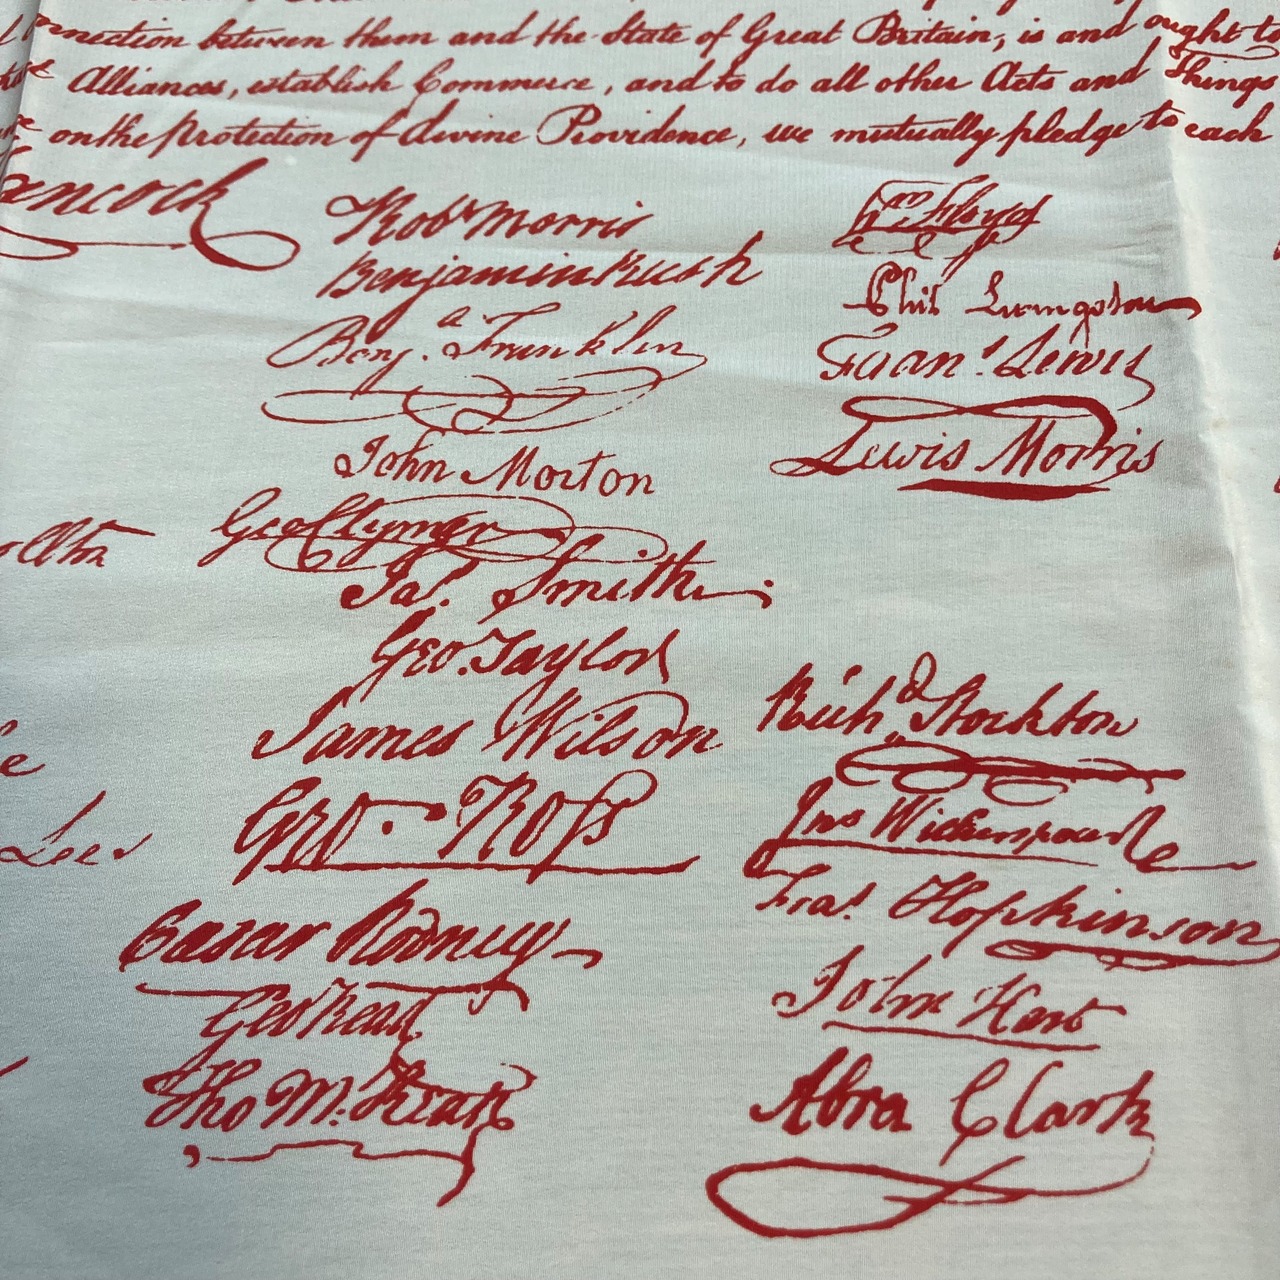 nnection between them and the State of Great Britain, is and ought to
Alliances, establish Commerce, and to do all other Acts and Things
on the protection of divine Providence, we mutually pledge to each
ancock
Robt Morris
Benjamin Rush
Benj.a Franklin
John Morton
Geo Clymer
Jas. Smith
Geo. Taylor
James Wilson
Geo. Ross
Caesar Rodney
Geo Read
Tho M:Kean
Wm. Floyd
Phil Livingston
Frans. Lewis
Lewis Morris
Richd. Stockton
Jno Witherspoon
Fras. Hopkinson
John Hart
Abra Clark